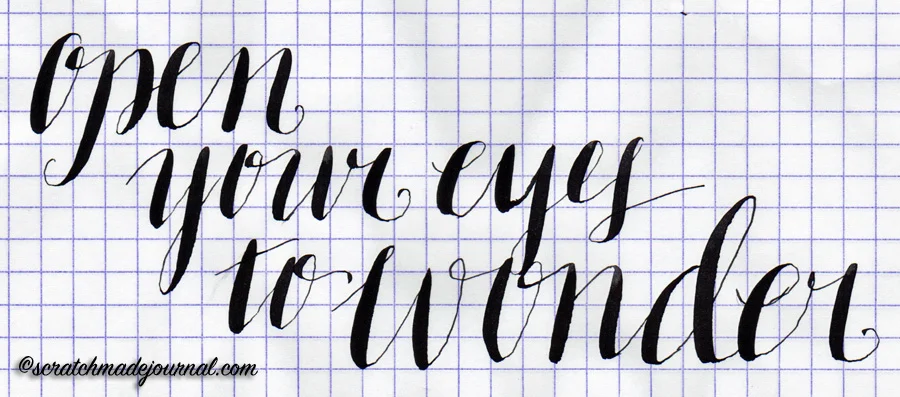 open
your eyes
to wonder
©scratchmadejournal.com